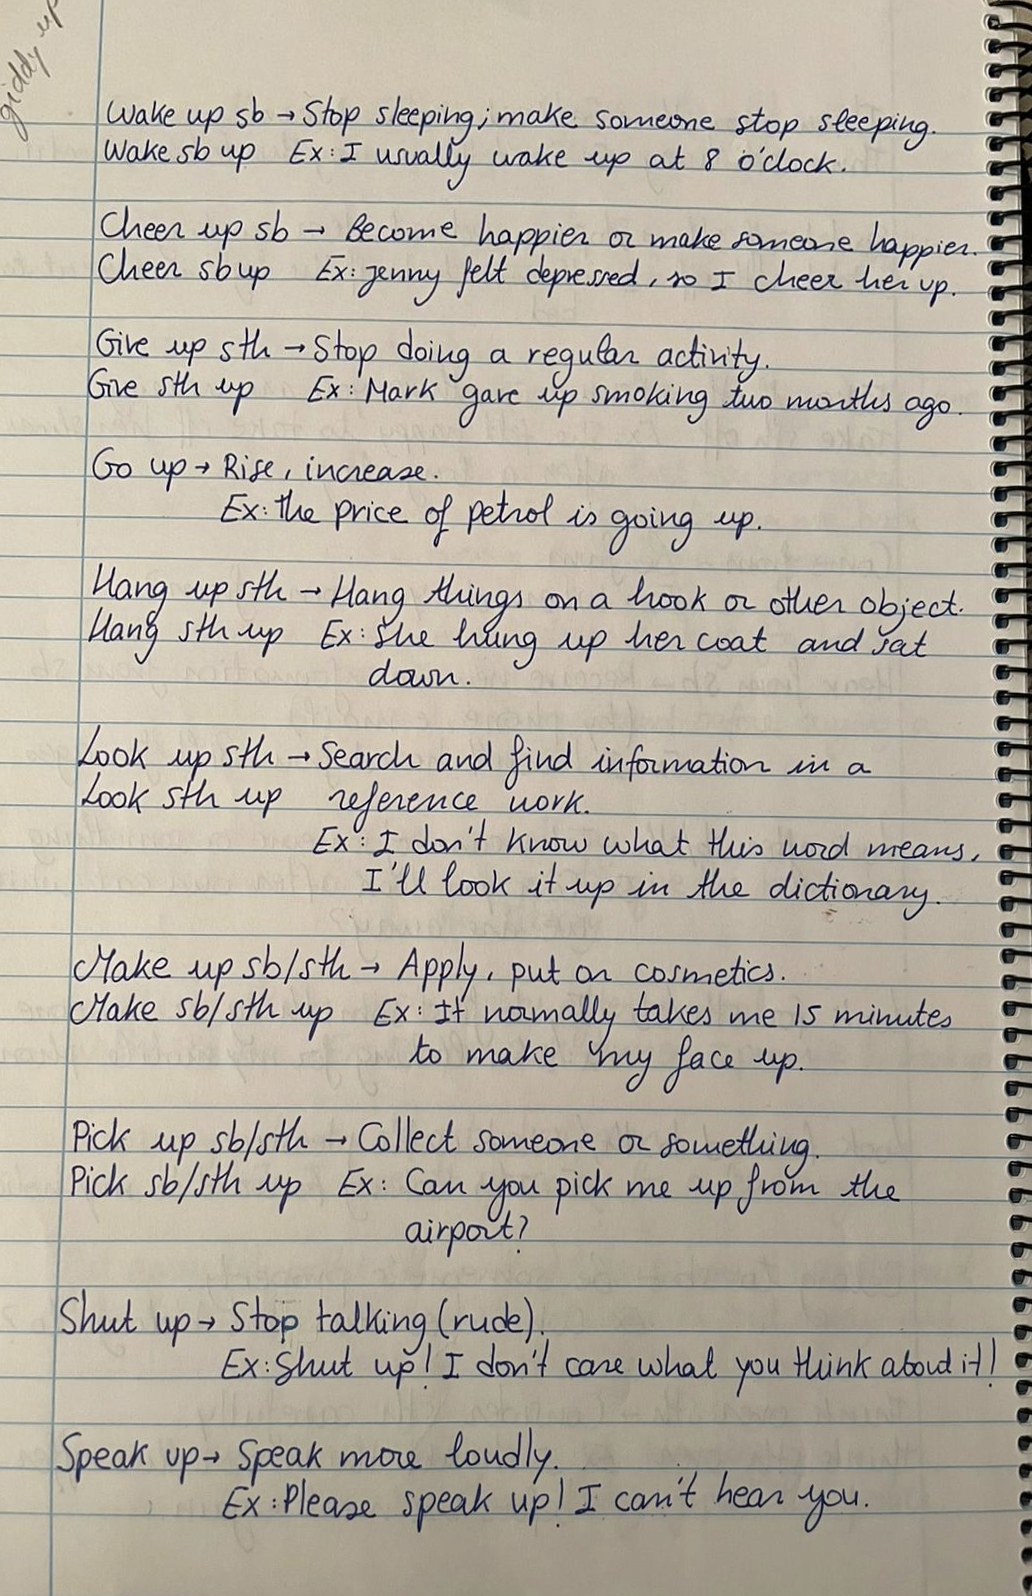 giddy up
Wake up sb → Stop sleeping; make someone stop sleeping.
Wake sb up Ex: I usually wake up at 8 o'clock.
Cheer up sb → Become happier or make someone happier.
Cheer sb up Ex: Jenny felt depressed, so I cheer her up.
Give up sth → Stop doing a regular activity.
Give sth up Ex: Mark gave up smoking two months ago.
Go up → Rise, increase.
Ex: the price of petrol is going up.
Hang up sth → Hang things on a hook or other object.
Hang sth up Ex: She hung up her coat and sat
down.
Look up sth → Search and find information in a
Look sth up reference work.
Ex: I don't know what this word means,
I'll look it up in the dictionary.
Make up sb/sth → Apply, put on cosmetics.
Make sb/sth up Ex: It normally takes me 15 minutes
to make my face up.
Pick up sb/sth → Collect someone or something.
Pick sb/sth up Ex: Can you pick me up from the
airport?
Shut up → Stop talking (rude).
Ex: Shut up! I don't care what you think about it!
Speak up → Speak more loudly.
Ex: Please speak up! I can't hear you.